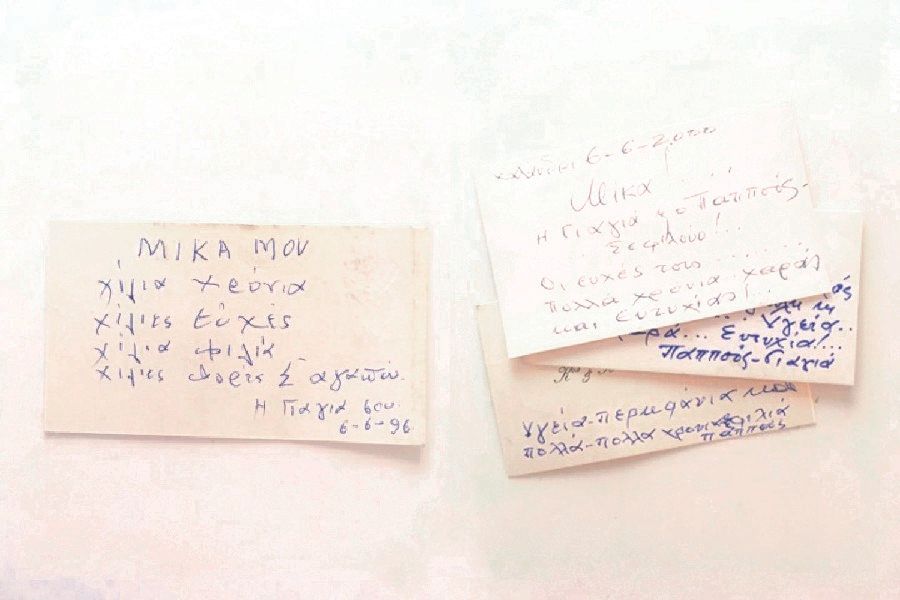 ΜΙΚΑ ΜΟΥ
χίλια χρόνια
χίλιες ευχές
χίλια φιλιά
χίλιες φορές Σ' αγαπώ.
Η Γιαγιά σου
6-6-96
6-6-2000
Μικα!
Η Γιαγιά κ ο Παππούς-
Οι ευχές τους
πολλά χρονια χαράς
και ευτυχίας!..
Υγεία..
Ευτυχία!..
Παππούς-Γιαγιά
Υγεία-περηφάνια και
πολλά-πολλα χρονια
φιλιά
παππούς